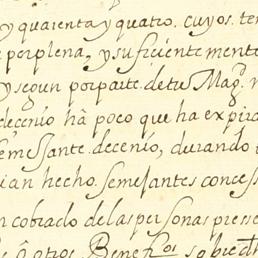 y quarenta y quatro. cuyos. ten
porplena, y suficiente mente
y segun porparte. de tu Mag.
decenio hã poco que ha expira
semejante. decenio, durando
ian hecho. semejantes concess
n cobrado de las personas presse
ó otros. Benefos sobredh